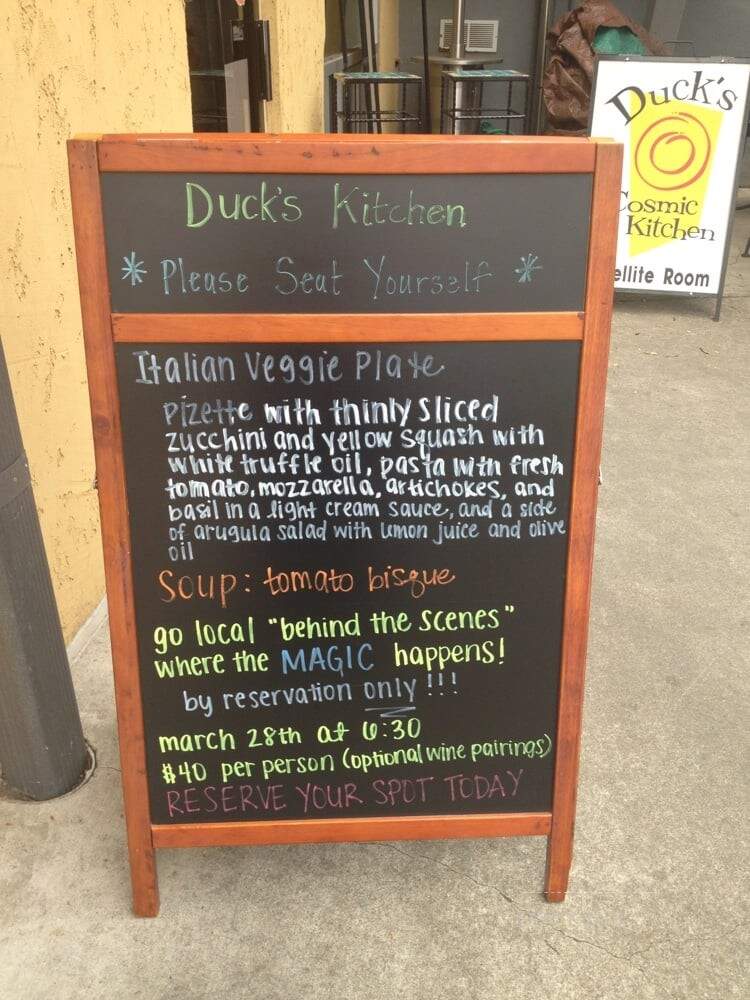 Duck's Kitchen
* Please Seat Yourself *
Italian Veggie Plate
Pizette with thinly sliced
zucchini and yellow squash with
white truffle oil, pasta with fresh
tomato, mozzarella, artichokes, and
basil in a light cream sauce, and a side
of arugula salad with lemon juice and olive
oil
Soup: tomato bisque
go local "behind the scenes"
where the MAGIC happens!
by reservation only!!!
march 28th at 6:30
$40 per person (optional wine pairings)
RESERVE YOUR SPOT TODAY
Duck's
Cosmic
Kitchen
ellite Room